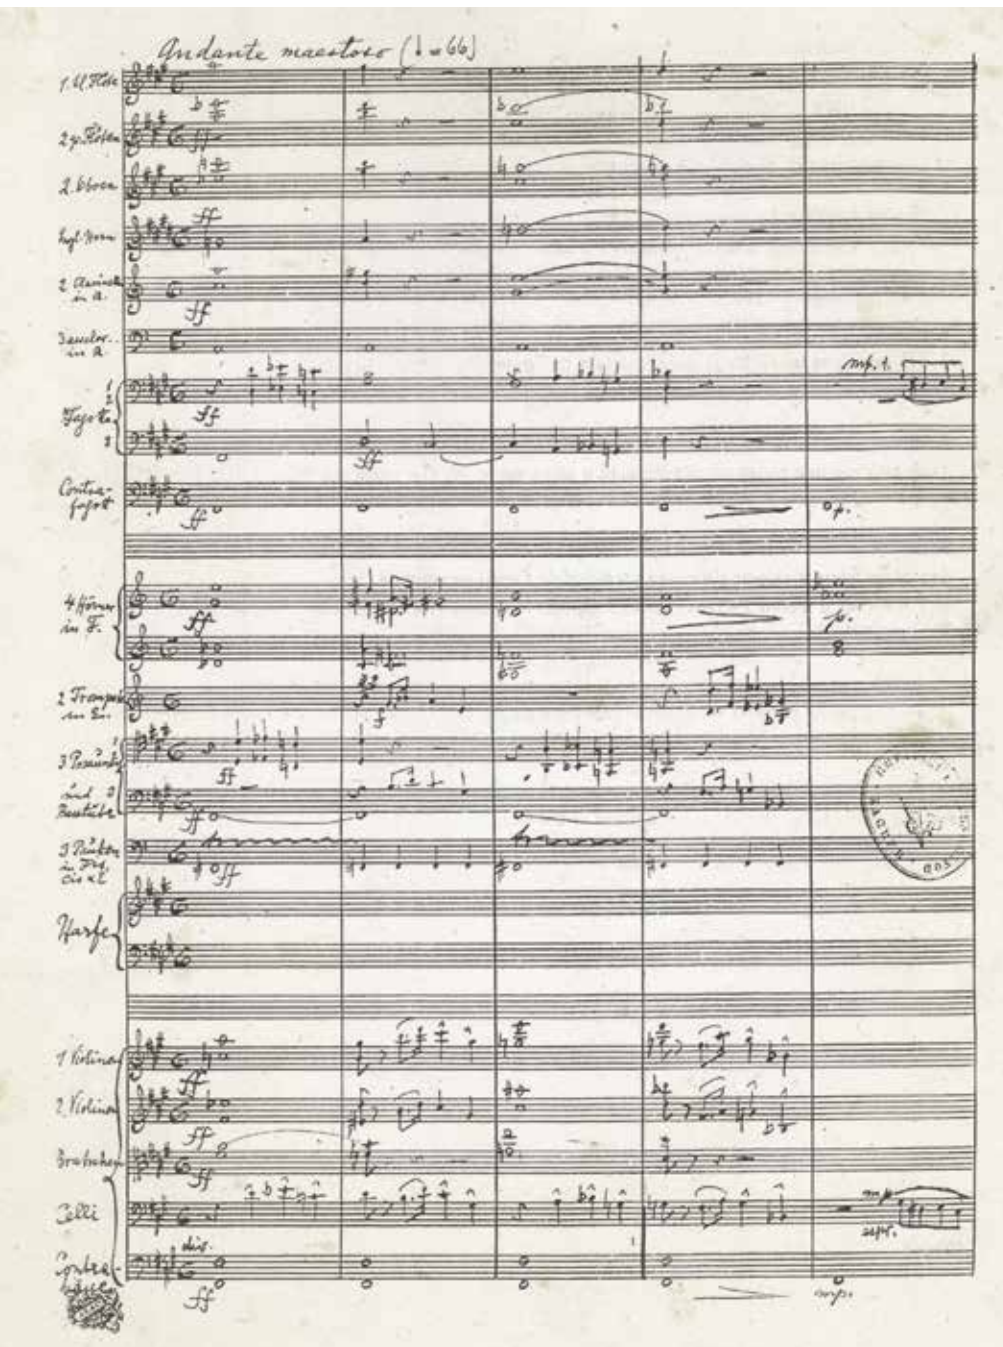 Andante maestoso (♩=66)
1. kl. Flöte
2 gr. Flöten
ff
2. Oboen
ff
Engl. Horn
2 Clarinetten
in A.
ff
in A
1
2
Fagotte
3
ff
mp. 1.
ff
Contra-
fagott
ff
p.
4 Hörner
in F.
ff
p.
2 Trompeten
in E.
f
1
3 Posaunen
ff
und 3
Basstuba
ff
3 Pauken
in
Cis
ff
Harfe
1 Violinen
ff
2. Violinen
ff
Bratschen
ff
Celli
mp
div.
Contra-
bässe
ff
mp.